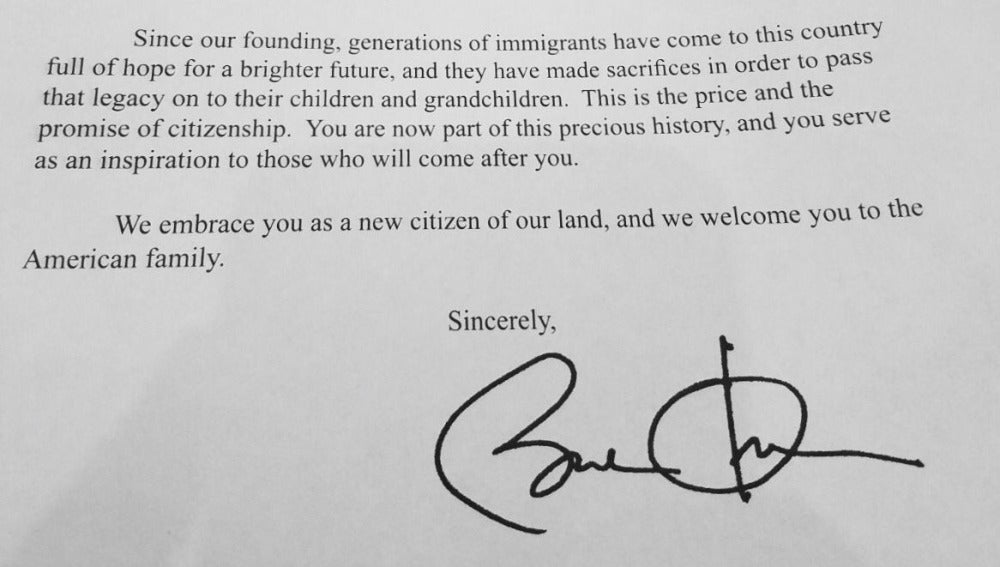 Since our founding, generations of immigrants have come to this country
full of hope for a brighter future, and they have made sacrifices in order to pass
that legacy on to their children and grandchildren. This is the price and the
promise of citizenship. You are now part of this precious history, and you serve
as an inspiration to those who will come after you.
We embrace you as a new citizen of our land, and we welcome you to the
American family.
Sincerely,